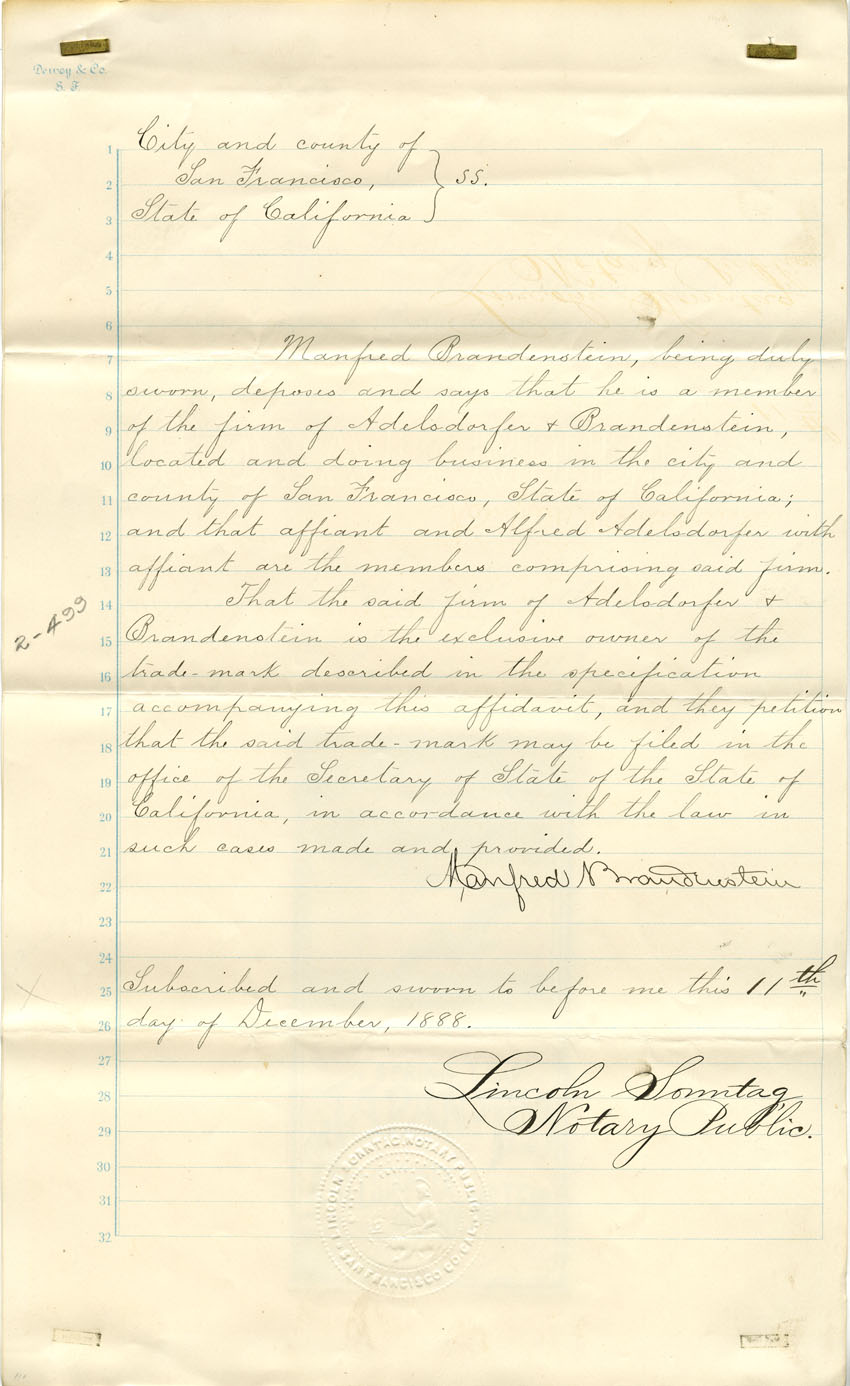 Dewey & Co.
S. F.
City and county of
San Francisco,
State of California
} ss.
1
2
3
4
5
6
7 Manfred Brandenstein, being duly
8 sworn, deposes and says that he is a member
9 of the firm of Adelsdorfer & Brandenstein,
10 located and doing business in the city and
11 county of San Francisco, State of California;
12 and that affiant and Alfred Adelsdorfer with
13 affiant are the members comprising said firm.
14 That the said firm of Adelsdorfer &
2-499
15 Brandenstein is the exclusive owner of the
16 trade-mark described in the specification
17 accompanying this affidavit, and they petition
18 that the said trade-mark may be filed in the
19 office of the Secretary of State of the State of
20 California, in accordance with the law in
21 such cases made and provided.
22 Manfred Brandenstein
23
24
25 Subscribed and sworn to before me this 11th
26 day of December, 1888.
27
28 Lincoln Sonntag
29 Notary Public.
30
31
32
LINCOLN SONNTAG NOTARY PUBLIC
SAN FRANCISCO CO. CAL.